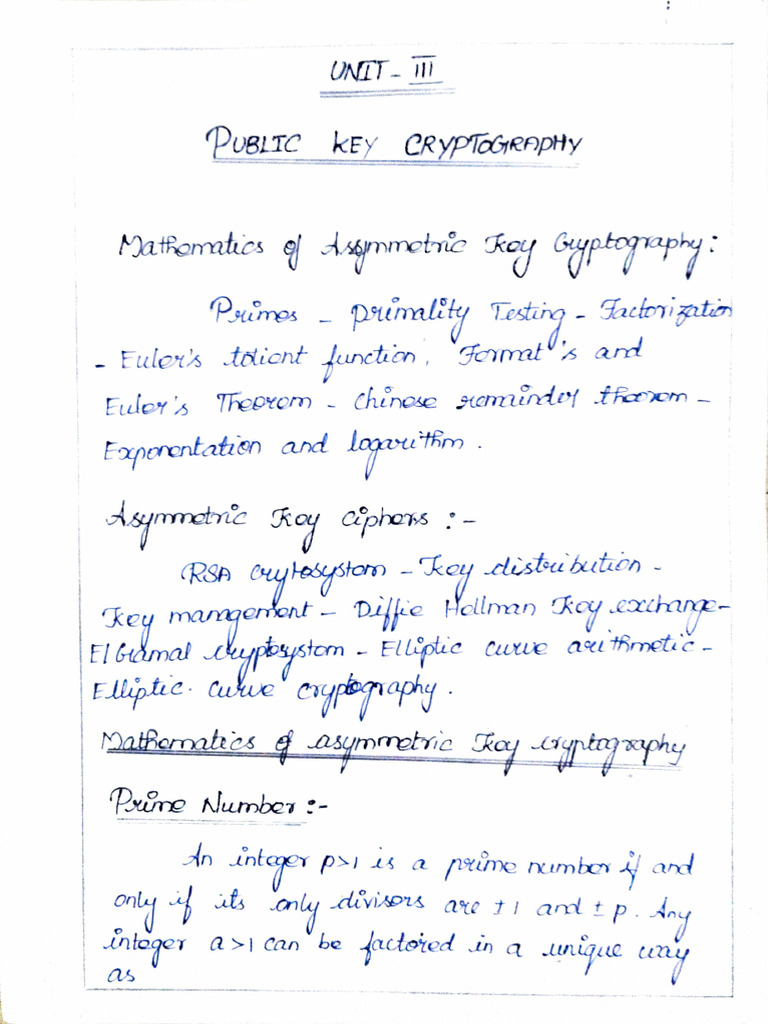 UNIT - III
PUBLIC KEY CRYPTOGRAPHY
Mathematics of Assymmetric Key Cryptography:
Primes - primality Testing - Factorization
- Euler's totient function, Fermat's and
Euler's Theorem - Chinese remainder theorem -
Exponentation and logarithm.
Asymmetric Key Ciphers :-
RSA crytosystem - Key distribution -
Key management - Diffie Hellman Key exchange -
ElGramal cryptosystem - Elliptic curve arithmetic -
Elliptic curve cryptography.
Mathematics of asymmetric Key cryptography
Prime Number :-
An integer p>1 is a prime number if and
only if its only divisors are ±1 and ±p. Any
integer a>1 can be factored in a unique way
as